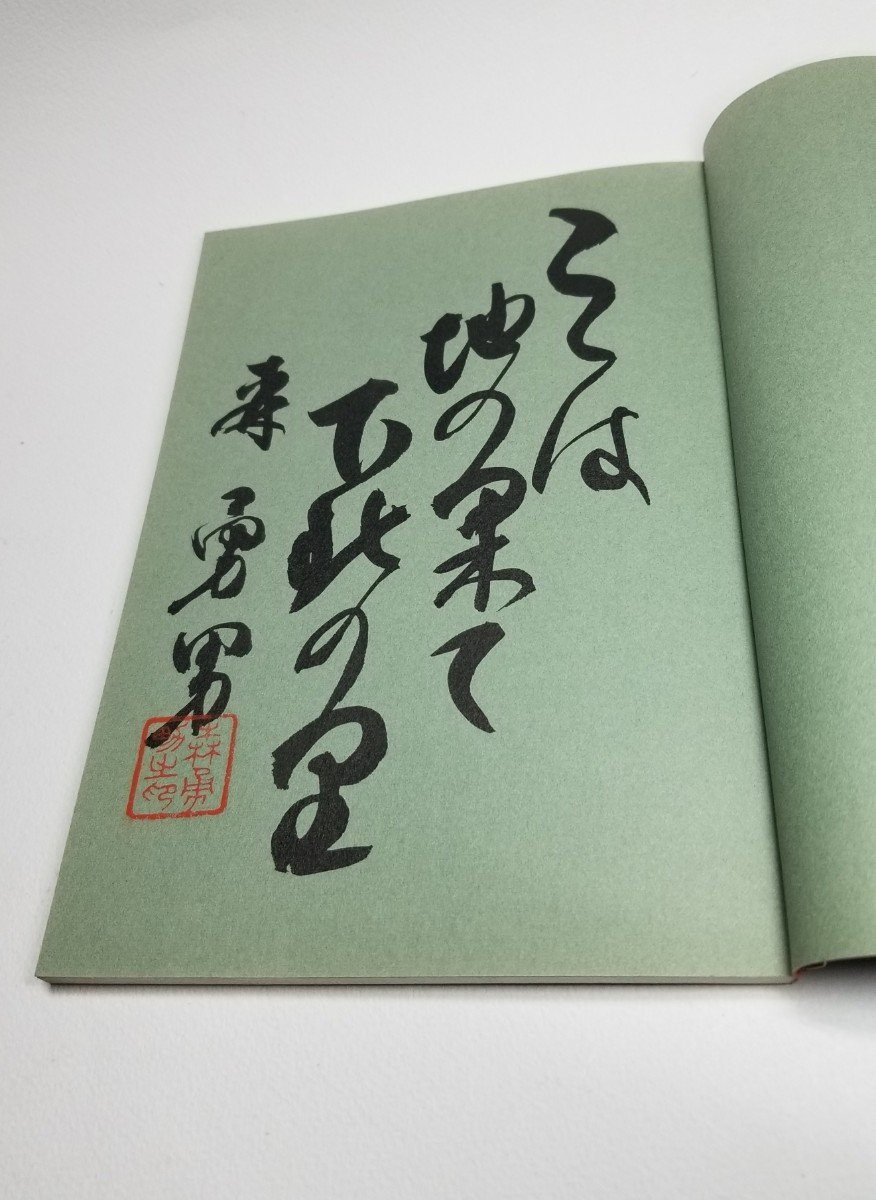 ここは
地の果て
下北の里
森 勇男
森勇
男之印